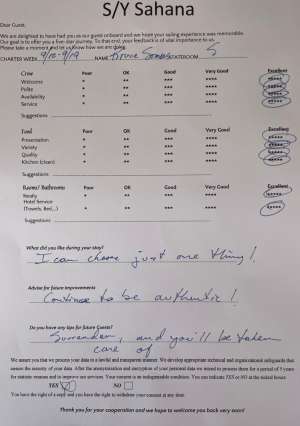 S/Y Sahana
Dear Guest,
We are delighted to have had you as our guest onboard and we hope your sailing experience was memorable.
Our goal is to offer you a five-star journey. To that end, your feedback is of vital importance to us.
Please take a moment and let us know how we are doing.
CHARTER WEEK 9/10-9/19 NAME Bruce STATEROOM 5
Crew Poor OK Good Very Good Excellent
Welcome * ** *** **** *****
Polite * ** *** **** *****
Availability * ** *** **** *****
Service * ** *** **** *****
Suggestions
Food Poor OK Good Very Good Excellent
Presentation * ** *** **** *****
Variety * ** *** **** *****
Quality * ** *** **** *****
Kitchen (clean) * ** *** **** *****
Suggestions
Rooms/ Bathrooms Poor OK Good Very Good Excellent
Ready * ** *** **** *****
Hotel Service
(Towels, Bed...) * ** *** **** *****
Suggestions:
What did you like during your stay?
I can choose just one thing!
Advise for future improvements
Continue to be authentic!
Do you have any tips for future Guests?
Surrender, and you'll be taken
care of
We assure you that we process your data in a lawful and transparent manner. We develop appropriate technical and organisational safeguards that
ensure the security of your data. After the anonymization and encryption of your personal data we intend to process them for a period of 5 years
for statistic reasons and to improve our services. Your consent is an indispensable condition. You can indicate YES or NO at the ticked boxes
YES NO
You have the right of a copy and you have the right to withdraw your consent at any time.
Thank you for your cooperation and we hope to welcome you back very soon!